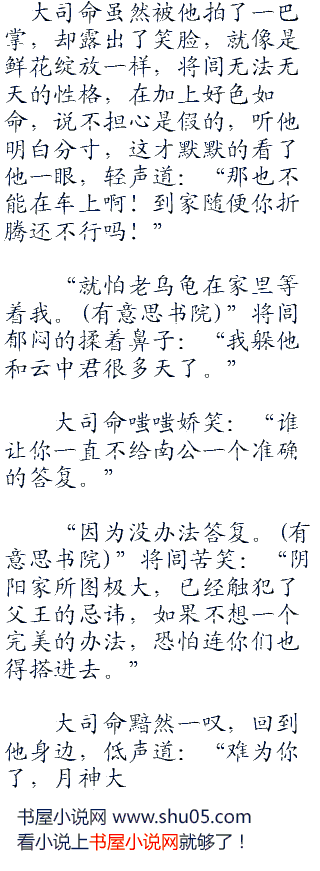 大司命虽然被他拍了一巴
掌，却露出了笑脸，就像是
鲜花绽放一样，将闾无法无
天的性格，在加上好色如
命，说不担心是假的，听他
明白分寸，这才默默的看了
他一眼，轻声道：“那也不
能在车上啊！到家随便你折
腾还不行吗！”
“就怕老乌龟在家里等
着我。(有意思书院)”将闾
郁闷的揉着鼻子：“我躲他
和云中君很多天了。”
大司命嗤嗤娇笑：“谁
让你一直不给南公一个准确
的答复。”
“因为没办法答复。(有
意思书院)”将闾苦笑：“阴
阳家所图极大，已经触犯了
父王的忌讳，如果不想一个
完美的办法，恐怕连你们也
得搭进去。”
大司命黯然一叹，回到
他身边，低声道：“难为你
了，月神大
书屋小说网 www.shu05.com
看小说上书屋小说网就够了！